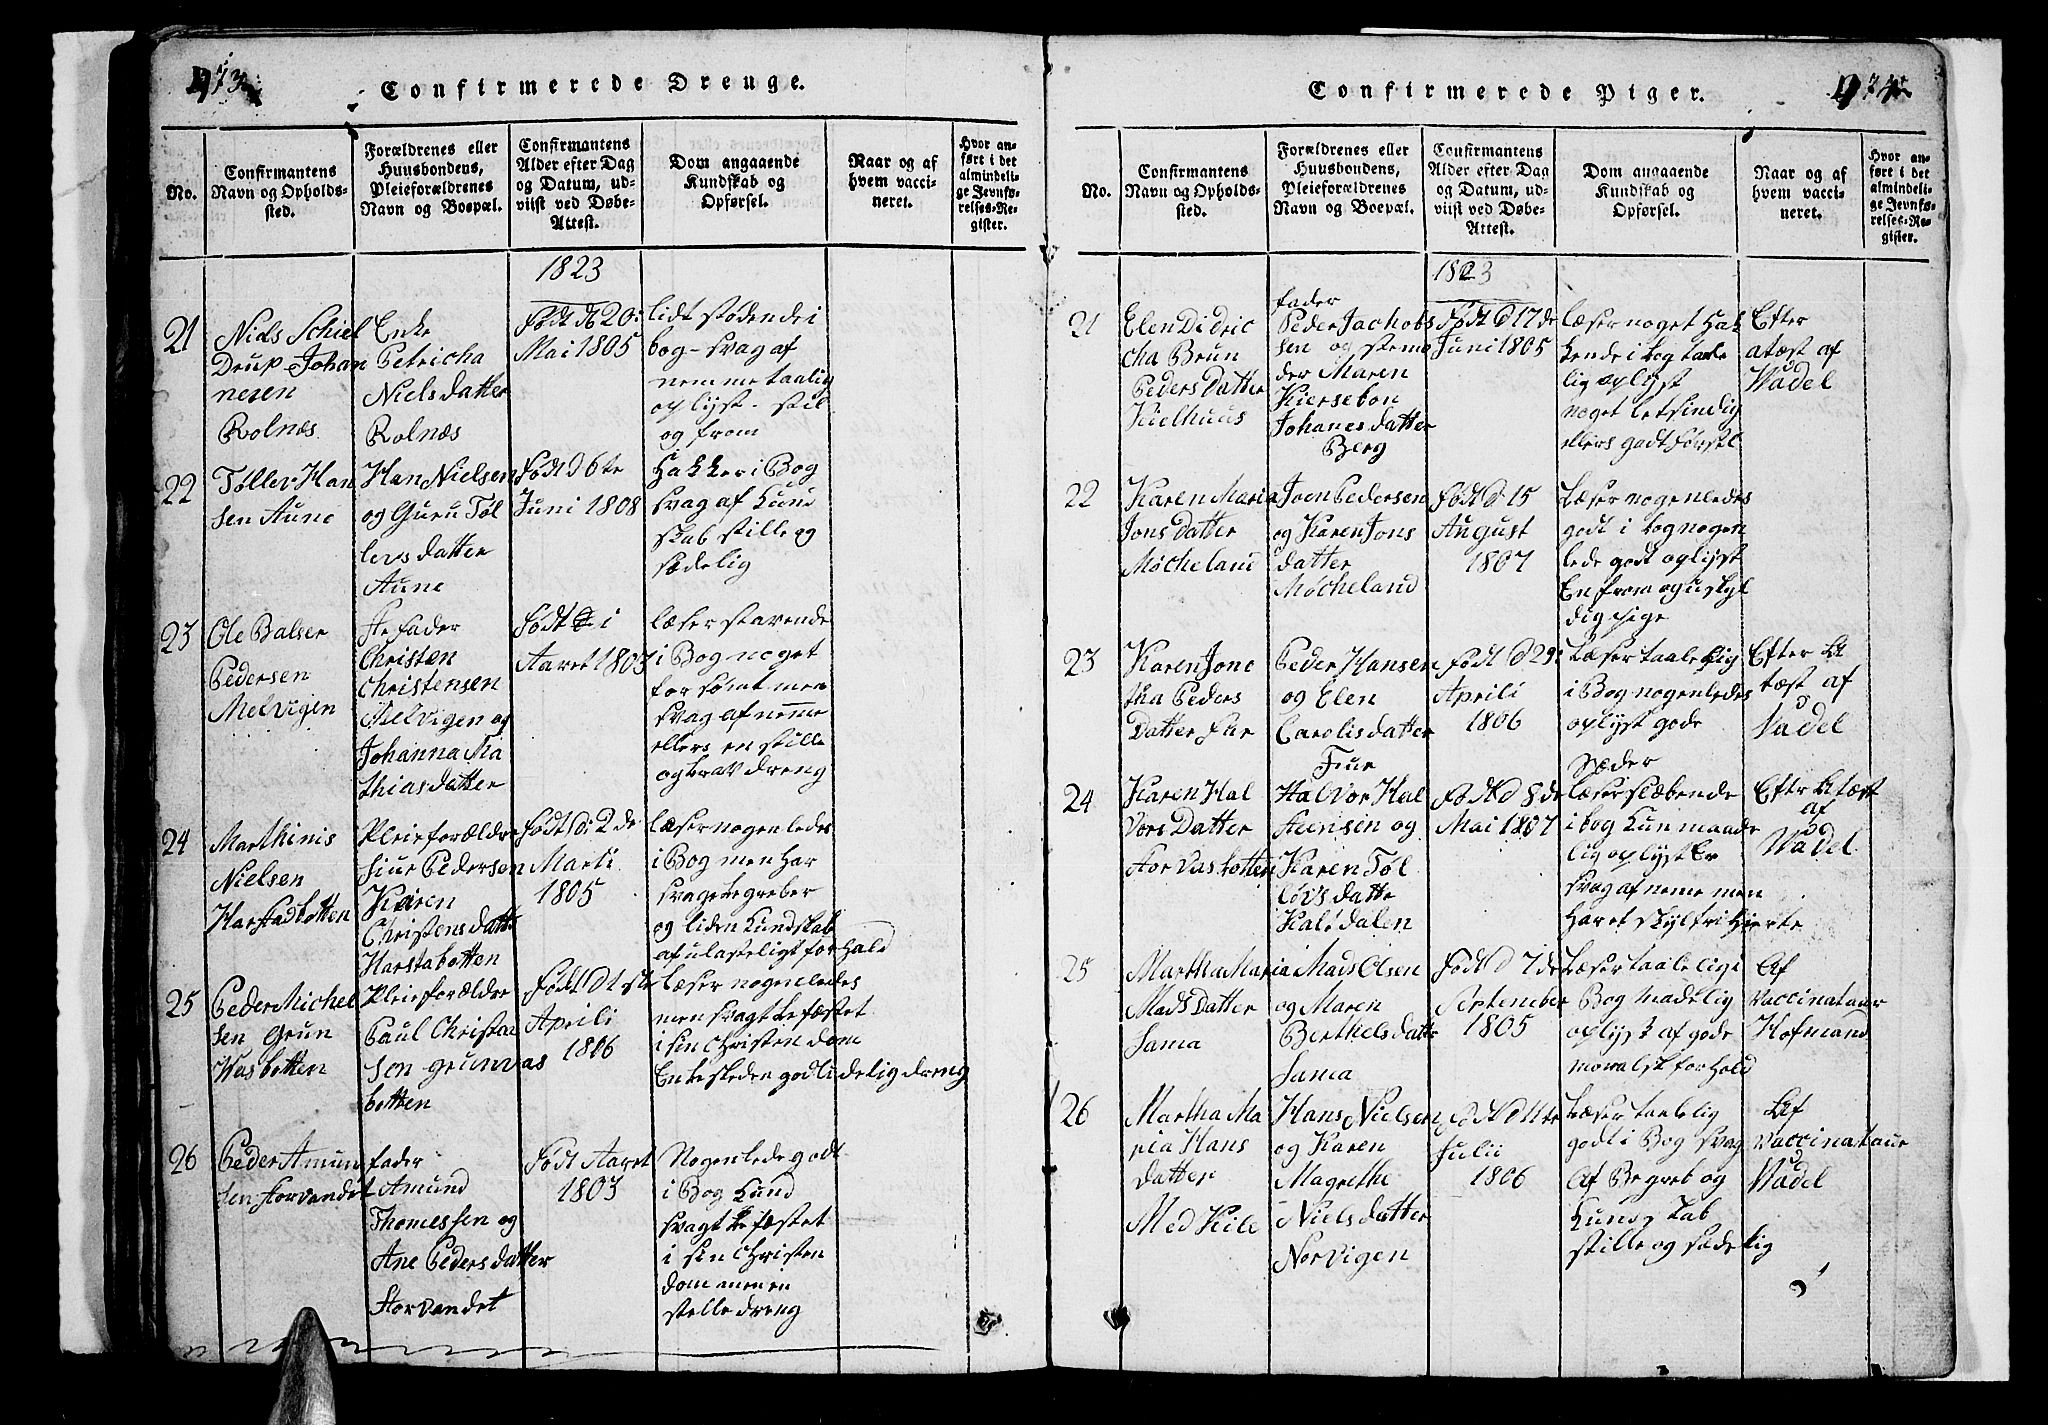 Confirmerede Drenge.
No.
Confirmantens
Navn og Opholds-
sted.
Forældrenes eller
Huusbondens,
Pleieforældrenes
Navn og Boepæl.
Confirmantens
Alder efter Dag
og Datum, ud-
viist ved Døbe-
Attest.
Dom angaaende
Kundskab og
Opførsel.
Naar og af
hvem vacci-
neret.
Hvor an-
ført i det
almindeli-
ge Jevnfø-
relses-Re-
gister.
1823
21
Niels Schiel
Drup Johan
nesen
Rolnæs
Enke
Petricha
Nielsdatter
Rolnæs
Født d 20:
Mai 1805
lidt stødende i
bog - svag af
nemme taalig
oplyst. stil
og from
22
Tøllev Han
sen Aune
Han Nielsen
og Guru Tøl
levsdatter
Aune
Født d 6te
Juni 1808
Hakker i Bog
svag af Kund
skab stille og
sædelig
23
Ole Balser
Pedersen
Melvigen
Stefader
Christen
Christensen
Melvigen og
Johanna Ma
thiasdatter
Født i
Aaret 1803
læser stavende
i Bog noget
forsømt men
svag af nemme
ellers en stille
og brav dreng
24
Marthinis
Nielsen
Harstadbotten
Pleieforældre
Siur Pedersen
Karen
Christensdatt
Harstabotten
Født d: 2 de
Marti
1805
læser nogenledes
i Bog men har
svage begreber
og liden Kundskab
af ulasteligt forhold
25
Peder Michel
sen Grun
Vasbotten
Pleieforældre
Paul Christen
sen grunvas
botten
Født d 1 ste
Aprili
1806
læser nogenledes
men svagt befæstet
i sin Christendom
Enbeskeden godlidelig dreng
26
Peder Amun
sen Storvandet
fader
Amund
Thomessen og
Ane Pedersdatter
Storvandet
Født Aaret
1803
Nogenlede godt
i Bog Kund
svagt befæstet
i sin Christen
dom men en
stelle dreng
Confirmerede Piger.
No.
Confirmantens
Navn og Opholds-
sted.
Forældrenes eller
Huusbondens,
Pleieforældrenes
Navn og Boepæl.
Confirmantens
Alder efter Dag
og Datum, ud-
viist ved Døbe-
Attest.
Dom angaaende
Kundskab og
Opførsel.
Naar og af
hvem vacci-
neret.
Hvor an-
ført i det
almindeli-
ge Jevnfø-
relses-Re-
gister.
1823
21
Elen Didric
cha Brun
Peders Datter
Kielhuus
fader
Peder Jachobs
sen og stemo
der Maren
Kiersebon
Johanesdatter
Berg
Født d 17 de
Juni 1805
læser noget Hak
kende i bog taale
lig oplyst
noget letsindig
ellers godt
Efter
atæst af
Wadel
22
Karen Maria
Jons Datter
Møcheland
Joen Pedersen
og Karen Jons
datter
Møcheland
Født d 15
August
1807
Læser nogenledes
godt i bog nogen
lede godt oplyst
En from og uskyl
dig pige
23
Karen Jone
tha Peders
Datter Fur
Peder Hansen
og Elen
Carolisdatter
Fuur
Født d 29:
Aprili
1806
Læser taalelig
i Bog nogenledes
oplyst gode
sæder
Efter At
tæst af
Wadel
24
Karen Hal
vors Datter
Storvasbotten
Halvor Hal
stensen og
Karen Tøl
løvsdatte
Kaldalen
Født d 8 de
Mai 1807
læser slæbende
i bog Kun maade
lig oplyst Er
svag af neme men
Har et skyltfri Hierte
Efter Atæst
af
Wadel
25
Martha Maria
Mads Datter
Sama
Mads Olsen
og Maren
Berthelsdatt
Sama
Født d 7 de
September
1805
Læser taaleligi
Bog madelig
oplyst af gode
moralsk forhold
Af
Vaccinatuur
Hofmand
26
Martha Ma
ria Hans
datter
Med Kile
Hans Nielsen
og Karen
Magrethe
Nielsdatter
Norvigen
Født d 11te
Julii
1806
Læser taalelig
godt i Bog svag
Af Begreb og
Kundskab
stille og sædelig
Af
Vaccinatuur
Wadel